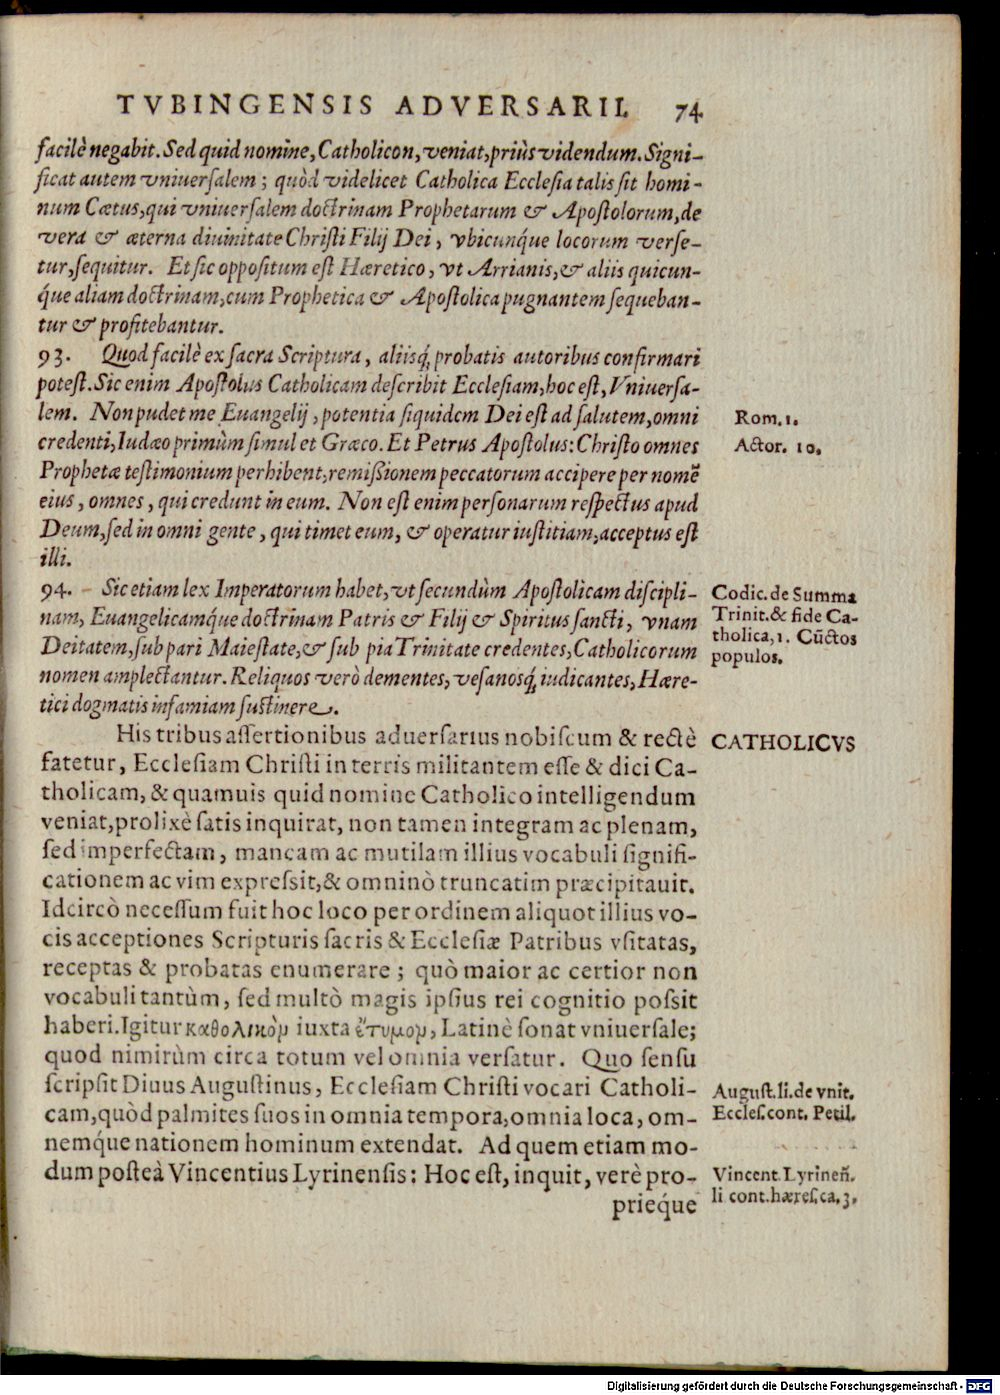 TVBINGENSIS ADVERSARII. 74
facilè negabit. Sed quid nomine, Catholicon, veniat, priùs videndum. Signi-
ficat autem vniuersalem; quòd videlicet Catholica Ecclesia talis sit homi-
num Cætus, qui vniuersalem doctrinam Prophetarum & Apostolorum, de
vera & æterna diuinitate Christi Filij Dei, vbicunq́ue locorum verse-
tur, sequitur. Et sic oppositum est Hæretico, vt Arrianis, & aliis quicun-
q́ue aliam doctrinam, cum Prophetica & Apostolica pugnantem sequeban-
tur & profitebantur.
93. Quod facilè ex sacra Scriptura, aliisq́; probatis autoribus confirmari
potest. Sic enim Apostolus Catholicam describit Ecclesiam, hoc est, Vniuersa-
lem. Non pudet me Euangelij, potentia siquidem Dei est ad salutem, omni
Rom. 1.
credenti, Iudæo primùm simul et Græco. Et Petrus Apostolus: Christo omnes
Actor. 10.
Prophetæ testimonium perhibent, remißionem peccatorum accipere per nomẽ
eius, omnes, qui credunt in eum. Non est enim personarum respectus apud
Deum, sed in omni gente, qui timet eum, & operatur iustitiam, acceptus est
illi.
94. Sic etiam lex Imperatorum habet, vt secundùm Apostolicam discipli-
Codic. de Summa
nam, Euangelicamq́ue doctrinam Patris & Filij & Spiritus sancti, vnam
Trinit. & fide Ca-
Deitatem, sub pari Maiestate, & sub pia Trinitate credentes, Catholicorum
tholica, 1. Cũctos
populos.
nomen amplectantur. Reliquos verò dementes, vesanosq́; iudicantes, Hære-
tici dogmatis infamiam sustinere.
His tribus assertionibus aduersarius nobiscum & rectè
CATHOLICVS
fatetur, Ecclesiam Christi in terris militantem esse & dici Ca-
tholicam, & quamuis quid nomine Catholico intelligendum
veniat, prolixè satis inquirat, non tamen integram ac plenam,
sed imperfectam, mancam ac mutilam illius vocabuli signifi-
cationem ac vim expressit, & omninò truncatim præcipitauit.
Idcircò necessum fuit hoc loco per ordinem aliquot illius vo-
cis acceptiones Scripturis sacris & Ecclesiæ Patribus vsitatas,
receptas & probatas enumerare; quò maior ac certior non
vocabuli tantùm, sed multò magis ipsius rei cognitio possit
haberi. Igitur καθολικὸν iuxta ἔτυμον, Latinè sonat vniuersale;
quod nimirùm circa totum vel omnia versatur. Quo sensu
scripsit Diuus Augustinus, Ecclesiam Christi vocari Catholi-
August. li. de vnit.
cam, quòd palmites suos in omnia tempora, omnia loca, om-
Eccles. cont. Petil.
nemq́ue nationem hominum extendat. Ad quem etiam mo-
dum posteà Vincentius Lyrinensis: Hoc est, inquit, verè pro-
Vincent. Lyrineñ.
li cont. hæres. ca. 3.
prieq́ue
Digitalisierung gefördert durch die Deutsche Forschungsgemeinschaft - DFG